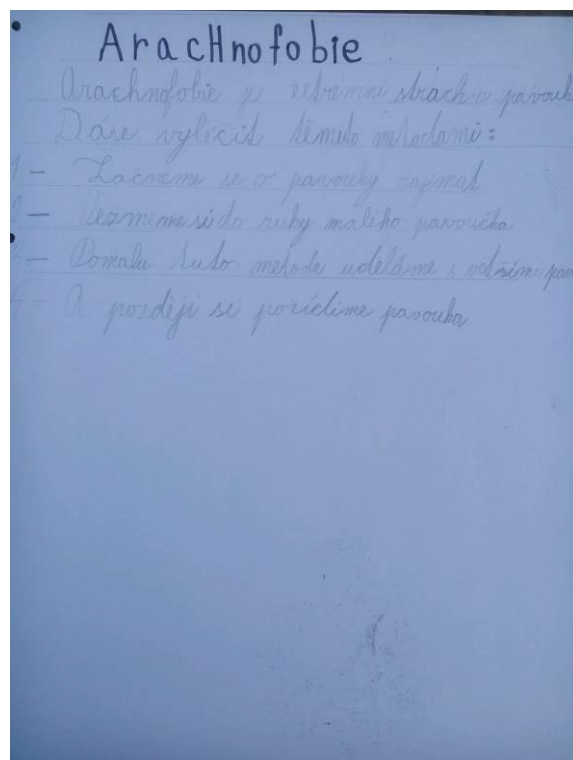 AracHnofobie
Arachnofobie je extremní strach z pavouk
Dáse vyléčit těmito metodami:
1- Začneme se o pavouky zajímat
2- Vezmeme si do ruky malého pavoučka
3- Pomalu tuto metodu uděláme s většími pav
4- A později si pořídíme pavouka